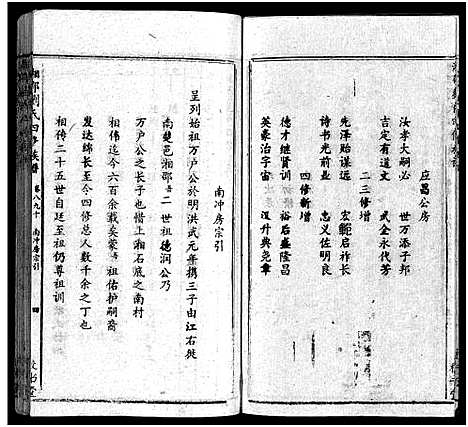 应昌公房
汝孝大嗣必 世万添子邦
吉定有道文 武全永代芳
二三修增
先泽贻谋远 宏启祚长
诗书光前业 忠义佐明良
四修新增
德才继贤训 裕后盛隆昌
英豪治宇宙 汉升典尧章
南冲房宗引
呈列始祖万户公於明洪武元年携三子由江右徙
南楚邑湘鄉 二世祖德润公乃
万户公之长子也惜上湘石底之南村
相伟迄今六百余载矣蒙 祖佑护嗣裔
发达绵长至今四修总人数千余之丁也
相传二十五世自廷至祖仍尊祖训
湘鄉刘氏四修族谱
卷八九十 南冲房宗引
四